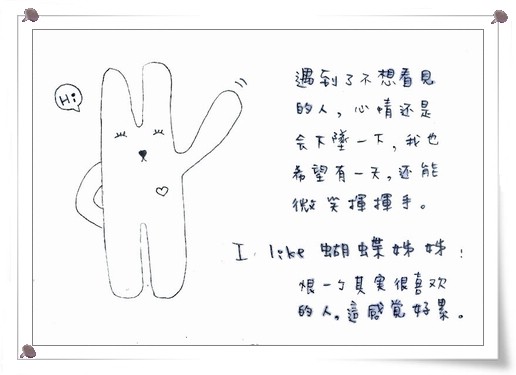 Hi
遇到了不想看見
的人，心情还是
会下墜一下，我也
希望有一天，还能
微笑揮揮手。
I like 蝴蝶姊姊！
恨一个其実很喜欢
的人。這感覚好累。